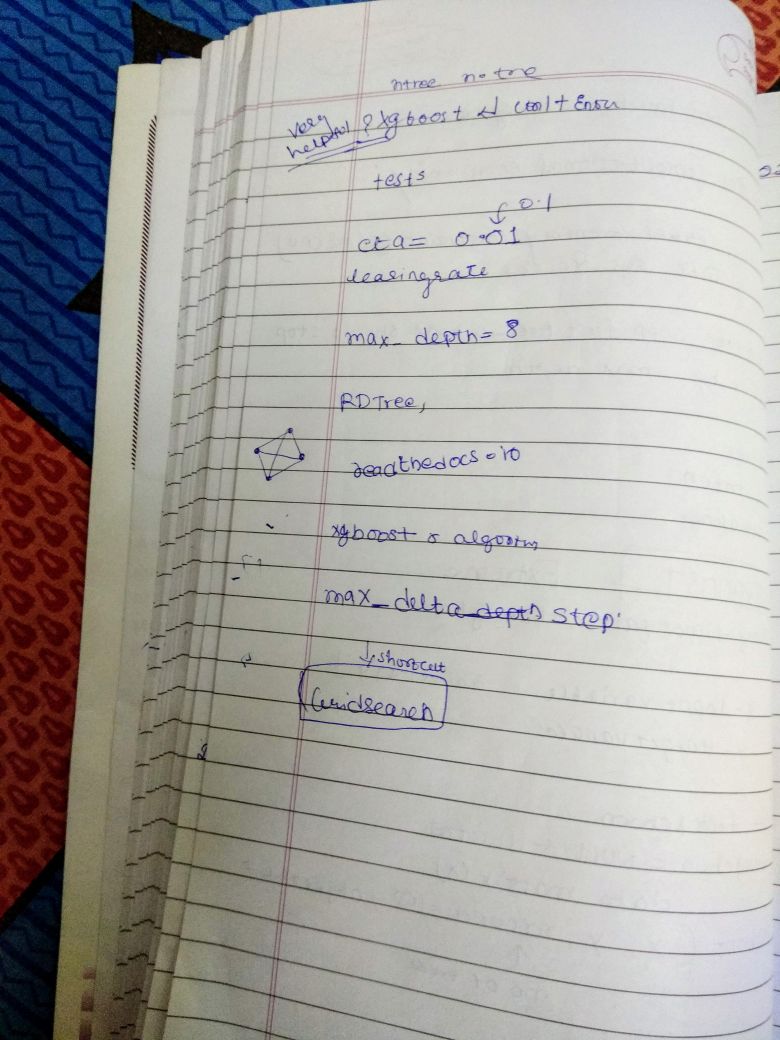 ntree
very
helpful ?xgboost ↵ Ctrl + Enter
tests
0.1
eta = 0.01
learningrate
max_depth = 8
RDTree,
readthedocs.io
xgboost
max_delta_depth step
↓ shortcut
Gridsearch